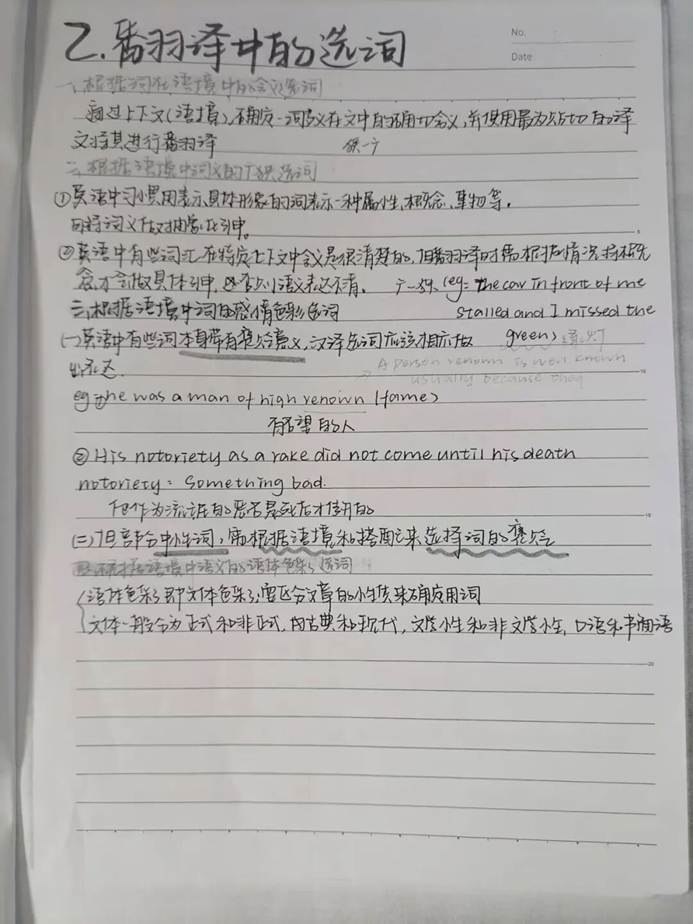 No.
2.翻译中的选词
Date
一、根据词在语境中的含义选词
通过上下文(语境),确定一词多义在文中的确切含义,并使用最为贴切的译
文将其进行翻译
换一个
二、根据语境中词义的广狭选词
①英语中习惯用表示具体形象的词表示一种属性、概念、事物等。
可将词义做抽象化引申。
②英语中有些词汇在特定上下文中含义是很清楚的,但翻译时需根据情况将概
念做具体引申,否则语义表达不清。 (eg: the car in front of me
三、根据语境中词的感情色彩选词 stalled and I missed the
(一)英语中有些词本身带有褒贬意义,汉译选词应该相应做 green) 绿灯
出表达. → A person renown is well known
usually because they
eg: ①he was a man of high renown (fame)
有名望的人
② His notoriety as a rake did not come until his death
notoriety: Something bad.
他作为流氓的恶名是死后才传开的
(二)但部分中性词,需根据语境和搭配来选择词的褒贬
语境中语义的语体色彩选词
语体色彩即文体色彩,要区分文章的性质来确定用词
文体一般分为正式和非正式,内古典和现代,文学性和非文学性,口语和书面语